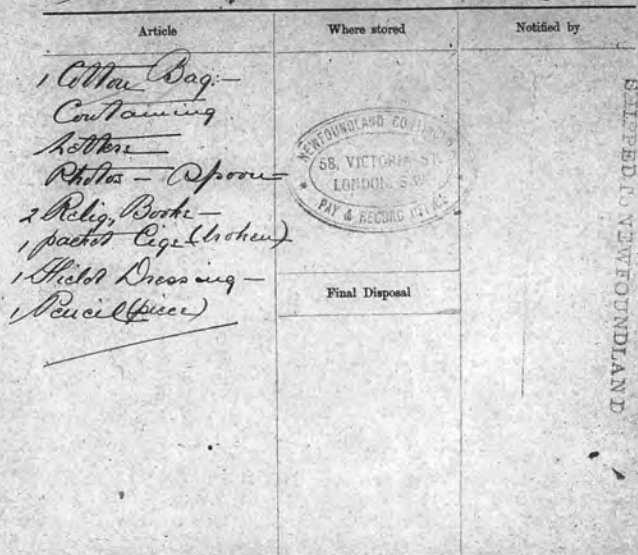 Article
Where stored
Notified by
1 Cotton Bag.—
Containing
Letters
Photos — Spoon—
2 Relig, Books —
1 packet Cigs (broken)
1 Field Dressing —
1 Pencil (piece)
NEWFOUNDLAND CONTINGENT
58, VICTORIA ST.
LONDON, S.W.
PAY & RECORD OFFICE
Final Disposal
SHIPPED TO NEWFOUNDLAND